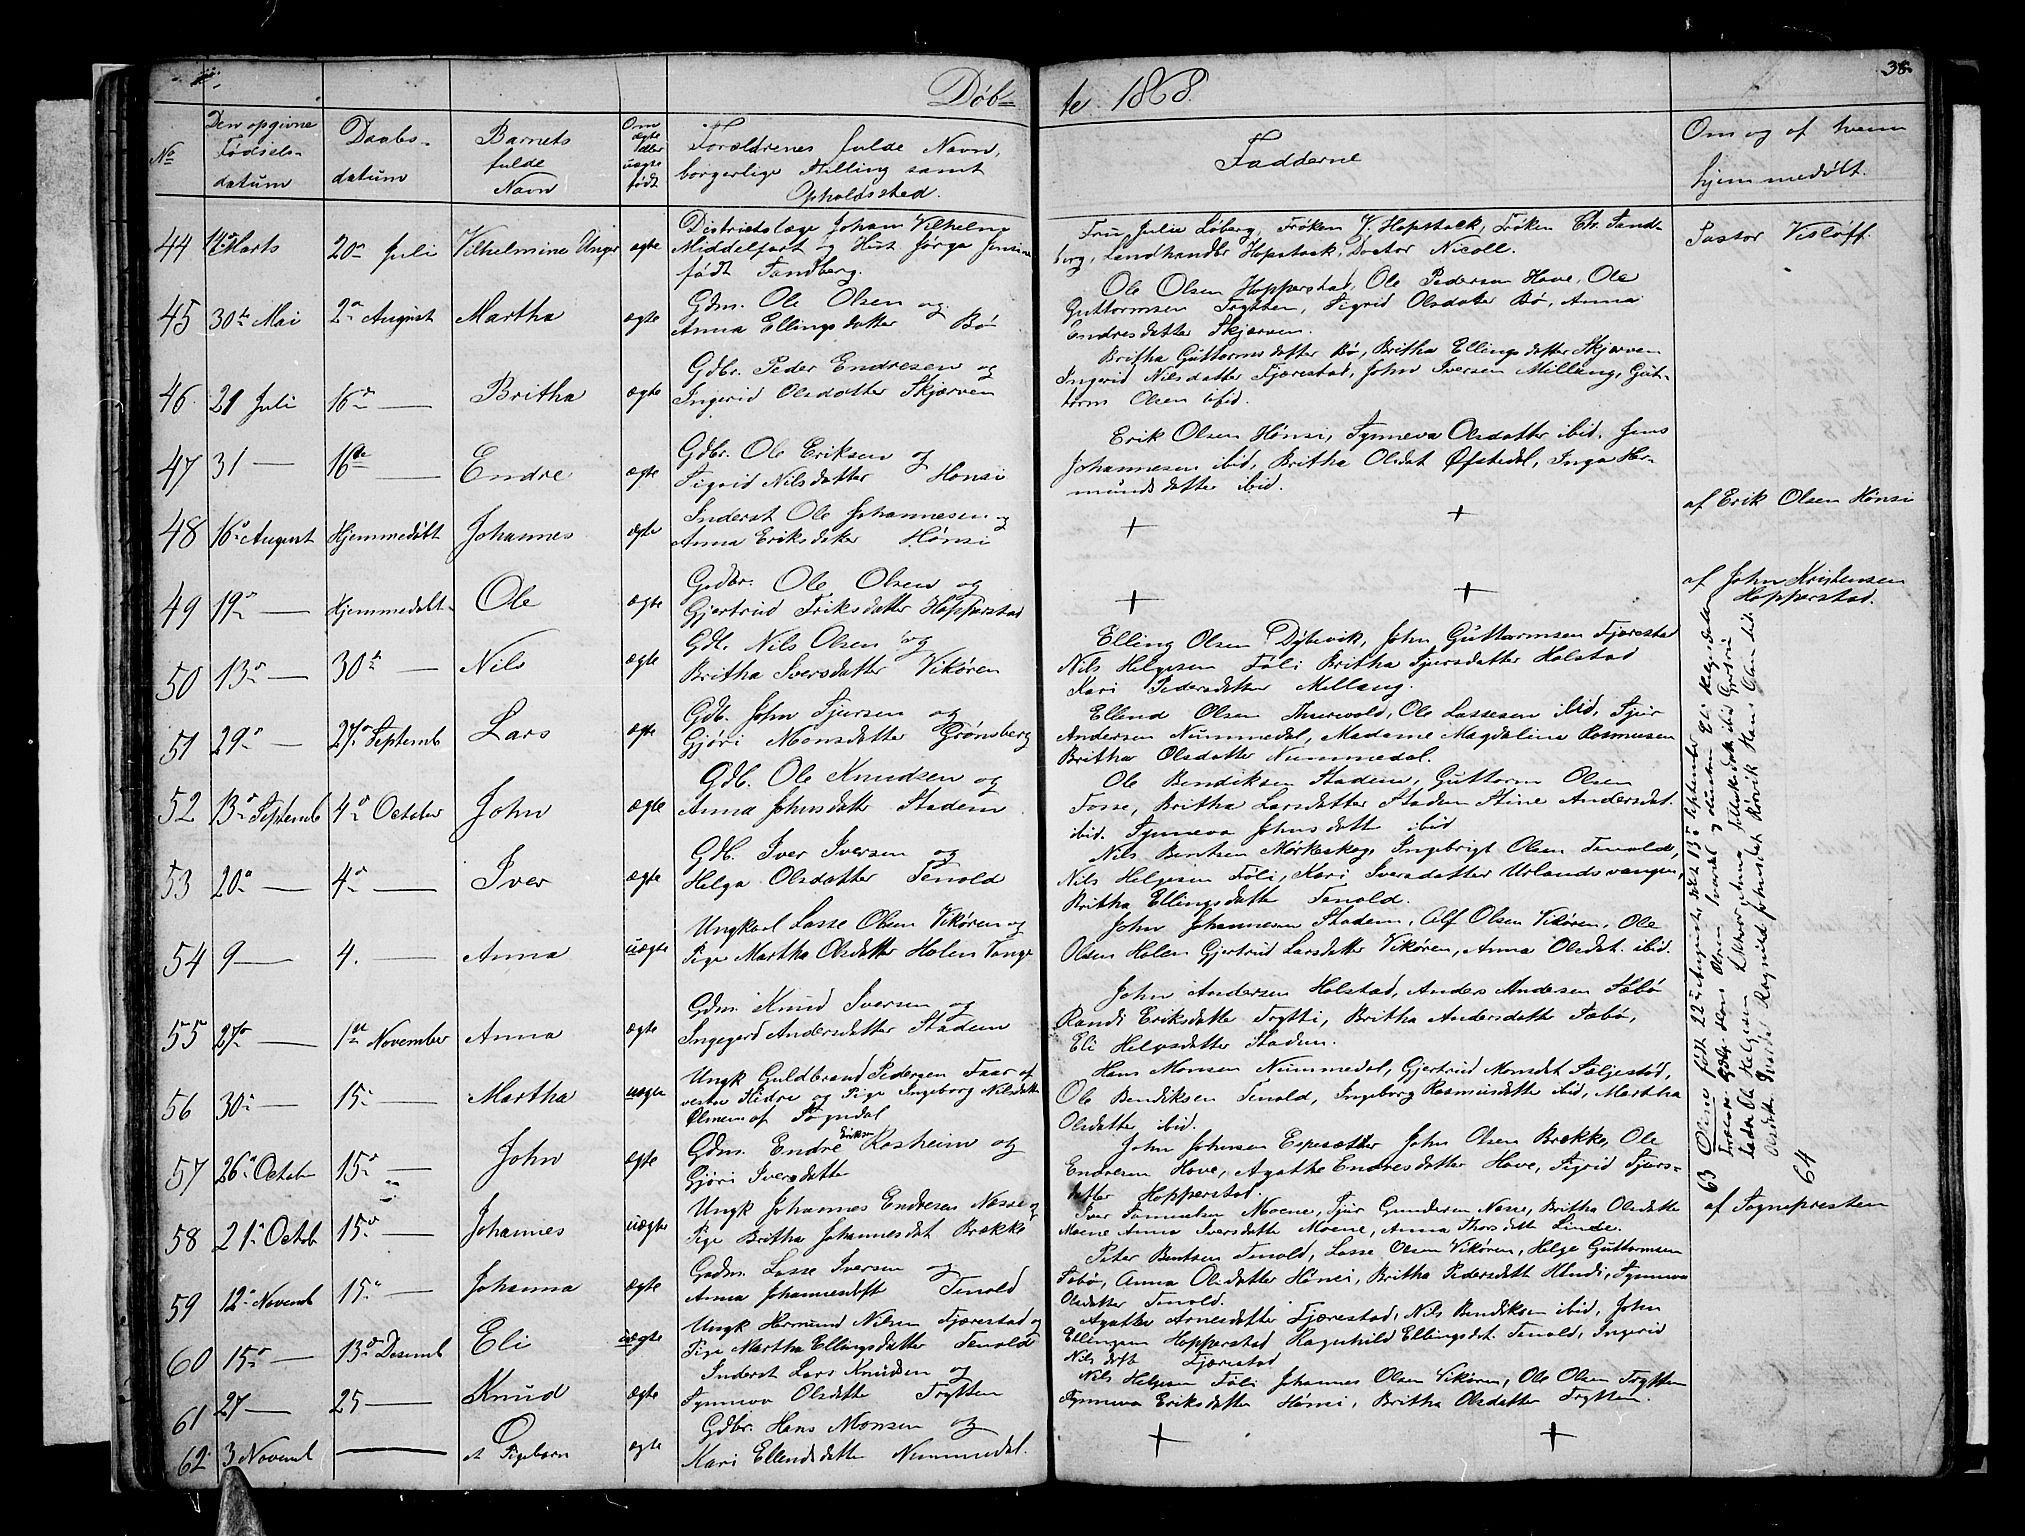 38.
Døb= te 1868.
No
Den opgivne Fødsels- datum
Daabs- datum
Barnets fulde Navn
Om ægte eller uægte født
Forældrenes fulde Navn, borgerlige Stilling samt Opholdssted.
Fadderne
Om og af hvem hjemmedøbt.
44 Marts 20 Juli Vilhelmine Unger ægte
Districtslæge Johan Vilhelm
Middelfart og Hust. Jørga Jensine
født Sandberg.
Fru Julie Løberg, Frøken V. Hopstock, Frøken Th. Sand-
berg, Landhandler Hopstock, Doctor Nicoll.
Pastor Visløff.
45 30te Mai 2den August Martha ægte
Gdm. Ole Olsen og
Anna Ellingsdatter Bø
Ole Olsen Hopperstad, Ole Pedersen Hove, Ole
Guttormsen Trytten, Sigrid Olsdatter Bø, Anna
Endresdatter Skjørven.
46. 21 Juli 16de — Britha ægte
Gdbr. Peder Endresen og
Ingerid Olsdatter Skjørven
Britha Guttormsdatter Bø, Britha Ellingsdatter Skjørven
Ingerid Nilsdatter Fjærestad, John Iversen Millang, Gut-
torm Olsen ibid.
47 31 — 16de — Endre ægte
Gdbr. Ole Eriksen og
Sigrid Nilsdatter Hønsi
Erik Olsen Hønsi, Synneva Olsdatter ibid. Jens
Johannesen ibid, Britha Olsdat Øfstedal, Inga Her-
mundsdatter ibid.
48 16de August Hjemmedøbt Johannes ægte
Inderst Ole Johannesen og
Anna Eriksdatter Hønsi
+ +
af Erik Olsen Hønsi
49 19de — Hjemmedøbt Ole ægte
Gdbr. Ole Olsen og
Gjertrud Eriksdatter Hopperstad
+ +
af John Kristensen
Hopperstad.
50 13de — 30te — Nils ægte
Gdb. Nils Olsen og
Britha Iversdatter Vikøren
Elling Olsen Dybevik, John Guttormsen Fjærestad
Nils Helgesen Føli Britha Sjursdatter Holstad
Kari Pedersdatter Millang.
51 29de — 27de Septemb Lars ægte
Gdb. John Sjursen og
Gjøri Monsdatter Grønsberg
Ellend Olsen Thurvold, Ole Lassesen ibid, Sjur
Andersen Nummedal, Madame Magdalina Rasmusen
Britha Olsdatter Nummedal.
52 13de Septemb 4de October John ægte
Gdb. Ole Knudsen og
Anna Johnsdatter Stadem
Ole Bendiksen Stadem, Guttorm Olsen
Tosse, Britha Larsdatter Stadem Stine Andersdat.
ibid. Synneva Johnsdatt ibid
53 20de — 4de — Iver ægte
Gdb. Iver Iversen og
Helga Olsdatter Tenold
Nils Bentsen Mørkeskog, Ingebrigt Olsen Tenold,
Nils Helgesen Føli, Kari Iversdatter Urlandsvangen,
Britha Ellingsdatt Tenold.
54 9 — 4. — Anna uægte
Ungkarl Lasse Olsen Vikøren og
Pige Martha Olsdatter Holen Vange
John Johannesen Stadem, Alf Olsen Vikøren, Ole
Olsen Holen Gjertrud Larsdatter Vikøren, Anna Olsdat. ibid.
55 27de — 1ste November Anna ægte
Gdm. Knud Iversen og
Ingegerd Andersdatter Stadem
John Andersen Holstad, Anders Andersen Sæbø
Randi Eriksdatte Trytti, Britha Andersdatte Sæbø,
Eli Helgesdatter Stadem.
56 30te — 15de — Martha uægte
Ungk Guldbrand Pedersen Faar af
vestre Slidre og Pige Ingeborg Nilsdatt
Olmem af Sogndal
Hans Monsen Nummedal, Gjertrud Monsdat Seljestød,
Ole Bendiksen Tenold, Ingeborg Rasmusdatt ibid, Martha
Olsdatter ibid.
57 26de Octob 15de — John ægte
Gdm. Endre Eriksen Rosheim og
Gjøri Iversdatter
John Johnsen Espesætter John Olsen Brekke, Ole
Endresen Hove, Agatha Endresdatter Hove, Sigrid Sjurs-
datter Hopperstad.
58 21de Octob 15de — Johannes uægte
Ungk Johannes Endresen Nesse og
Pige Britha Johannesdat Brække
Iver Samuelsen Moene, Sjur Gundersen Nesse, Britha Olsdatte
Moene Anna Iversdatte Moene, Anna Thorsdatt Linde.
af Sognepresten
59 12de Novemb 15de — Johanna ægte
Gadm. Lasse Iversen og
Anna Johannesdatt Tenold
Peter Bentsen Tenold, Lasse Olsen Vikøren, Helge Guttormsen
Sæbø, Anna Olsdatter Hønsi, Britha Pedersdatt Hindi, Synneva
Olsdatter Tenold.
60 15de — 13de Desemb Eli uægte
Ungk Hermund Nilsen Fjærestad og
Pige Martha Ellingsdatter Tenold
Agatha Arnesdatter Fjærestad, Nils Bendiksen ibid, John
Ellingsen Hopperstad Ragnhild Ellingsdat. Tenold, Ingerid
Nilsdatt Fjærestad
61 27 — 25 — Knud ægte
Inderst Lars Knudsen og
Synneva Olsdatte Trytten
Nils Helgesen Føli Johannes Olsen Vikøren, Ole Olsen Trytten
Synneva Eriksdatter Hønsi, Britha Olsdatter Trytten.
62 3 Novemb — et Pigebarn ægte
Gdbr. Hans Monsen og
Kari Ellendsdatte Nummedal.
+ +
63 Olsine født 22de August døbt 13de September
Forældre Gdbr. Hans Olsen Svardal og Hustru Eli Helgesdatter
Ole Helgesen
Ragnild Johnsdatt Rørvik Hans Olsen ibid
64